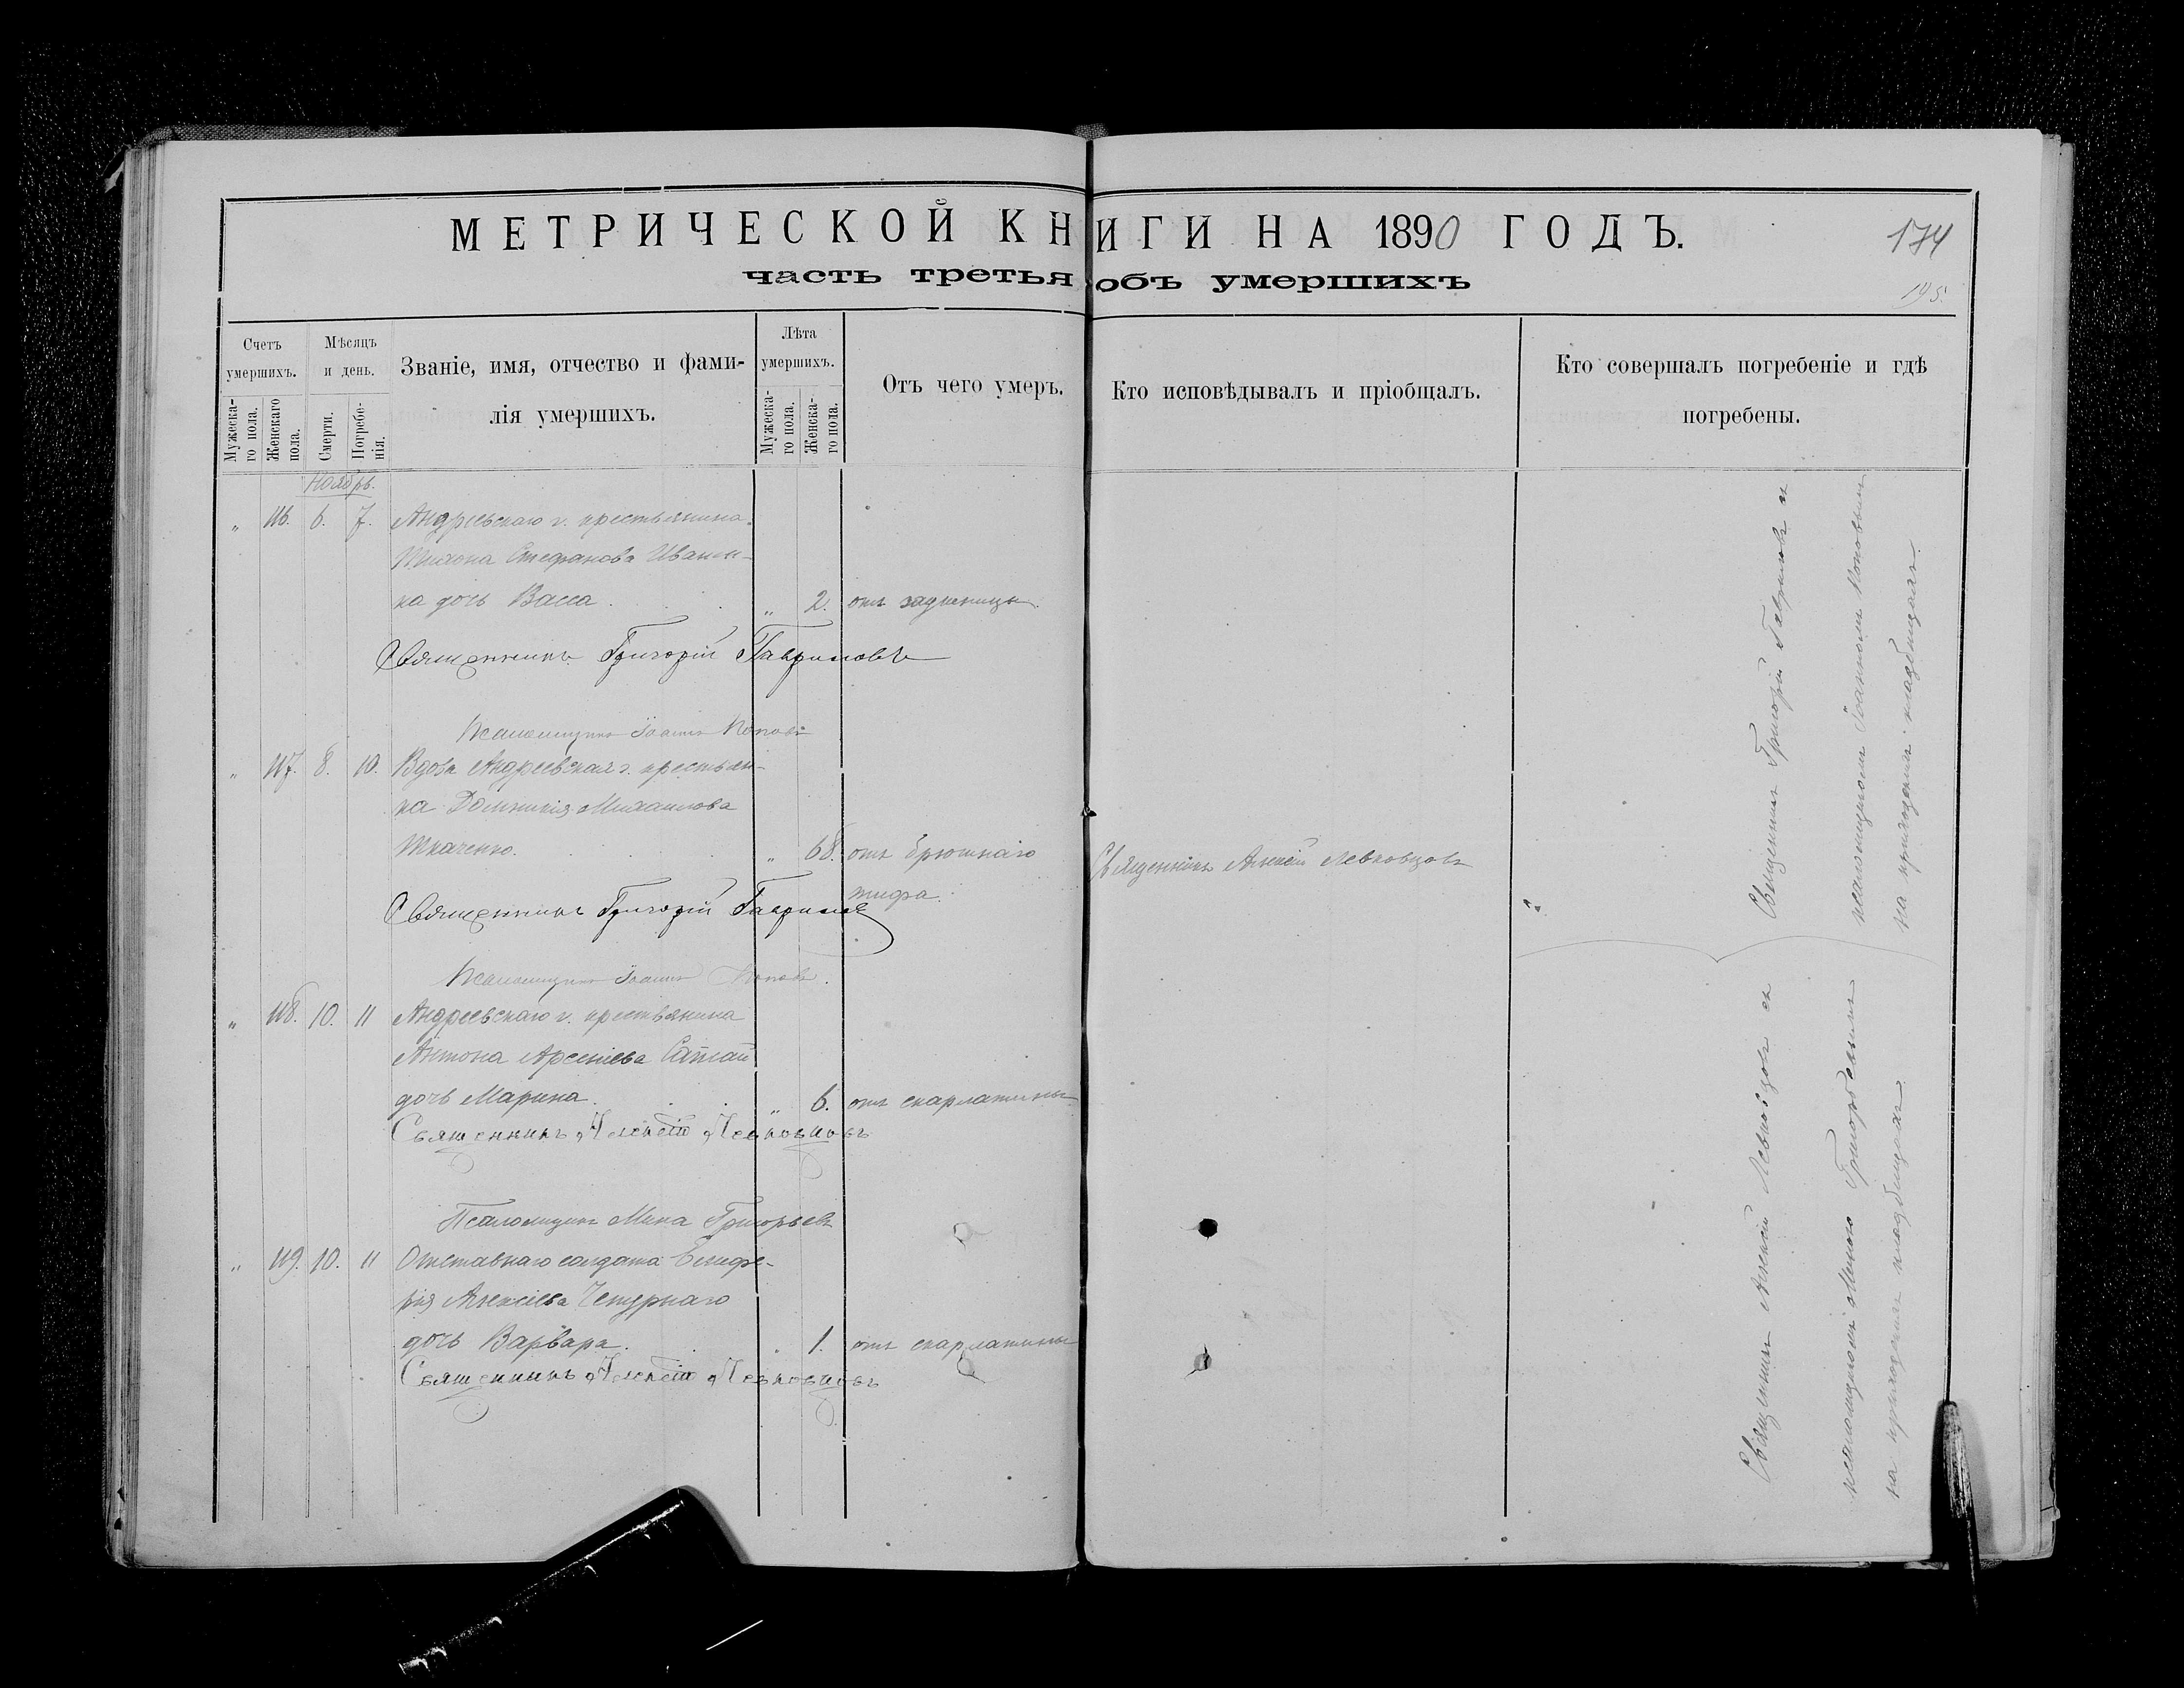 МЕТРИЧЕСКОЙ КНИГИ НА 1890 ГОДЪ.
174
часть третья объ умершихъ
195.
Счетъ умершихъ.
Мужеска-го пола.
Женскаго пола.
Мѣсяцъ и день.
Смерти.
Погребе-нія.
Званіе, имя, отчество и фами-
лія умершихъ.
Лѣта умершихъ.
Мужеска-го пола.
Женска-го пола.
Отъ чего умеръ.
Кто исповѣдывалъ и пріобщалъ.
Кто совершалъ погребеніе и гдѣ
погребены.
Ноябрь.
„ 116. 6. 7. Андреевскаго г. крестьянина
Тихона Стефанова Иванен-
ка дочь Васса. „ 2. отъ задушницы.
Священникъ Григорій Гавриловъ
Псаломщикъ Іоаннъ Поповъ
„ 117. 8. 10. Вдова Андреевская г. крестьян-
ка Домникія Михаилова
Ткаченко. „ 68. отъ брюшнаго
тифа.
Священникъ Алексій Левковцовъ
Священникъ Григорій Гавриловъ
Псаломщикъ Іоаннъ Поповъ.
Священникъ Григорій Гавриловъ съ
псаломщикомъ Іоанномъ Поповымъ
на приходскомъ кладбищѣ.
„ 118. 10. 11 Андреевскаго г. крестьянина
Антона Арсеніева
дочь Марина. „ 6. отъ скарлатины
Священникъ Алексѣй Левковцовъ
Псаломщикъ Мина Григорьевъ
„ 119. 10. 11 Отставнаго солдата Елифе-
рія Алексіева Чепурнаго
дочь Варвара. „ 1. отъ скарлатины
Священникъ Алексѣй Левковцовъ
Священникъ Алексій Левковцовъ съ
псаломщикомъ Миною Григорьевымъ
на приходскомъ кладбищѣ.